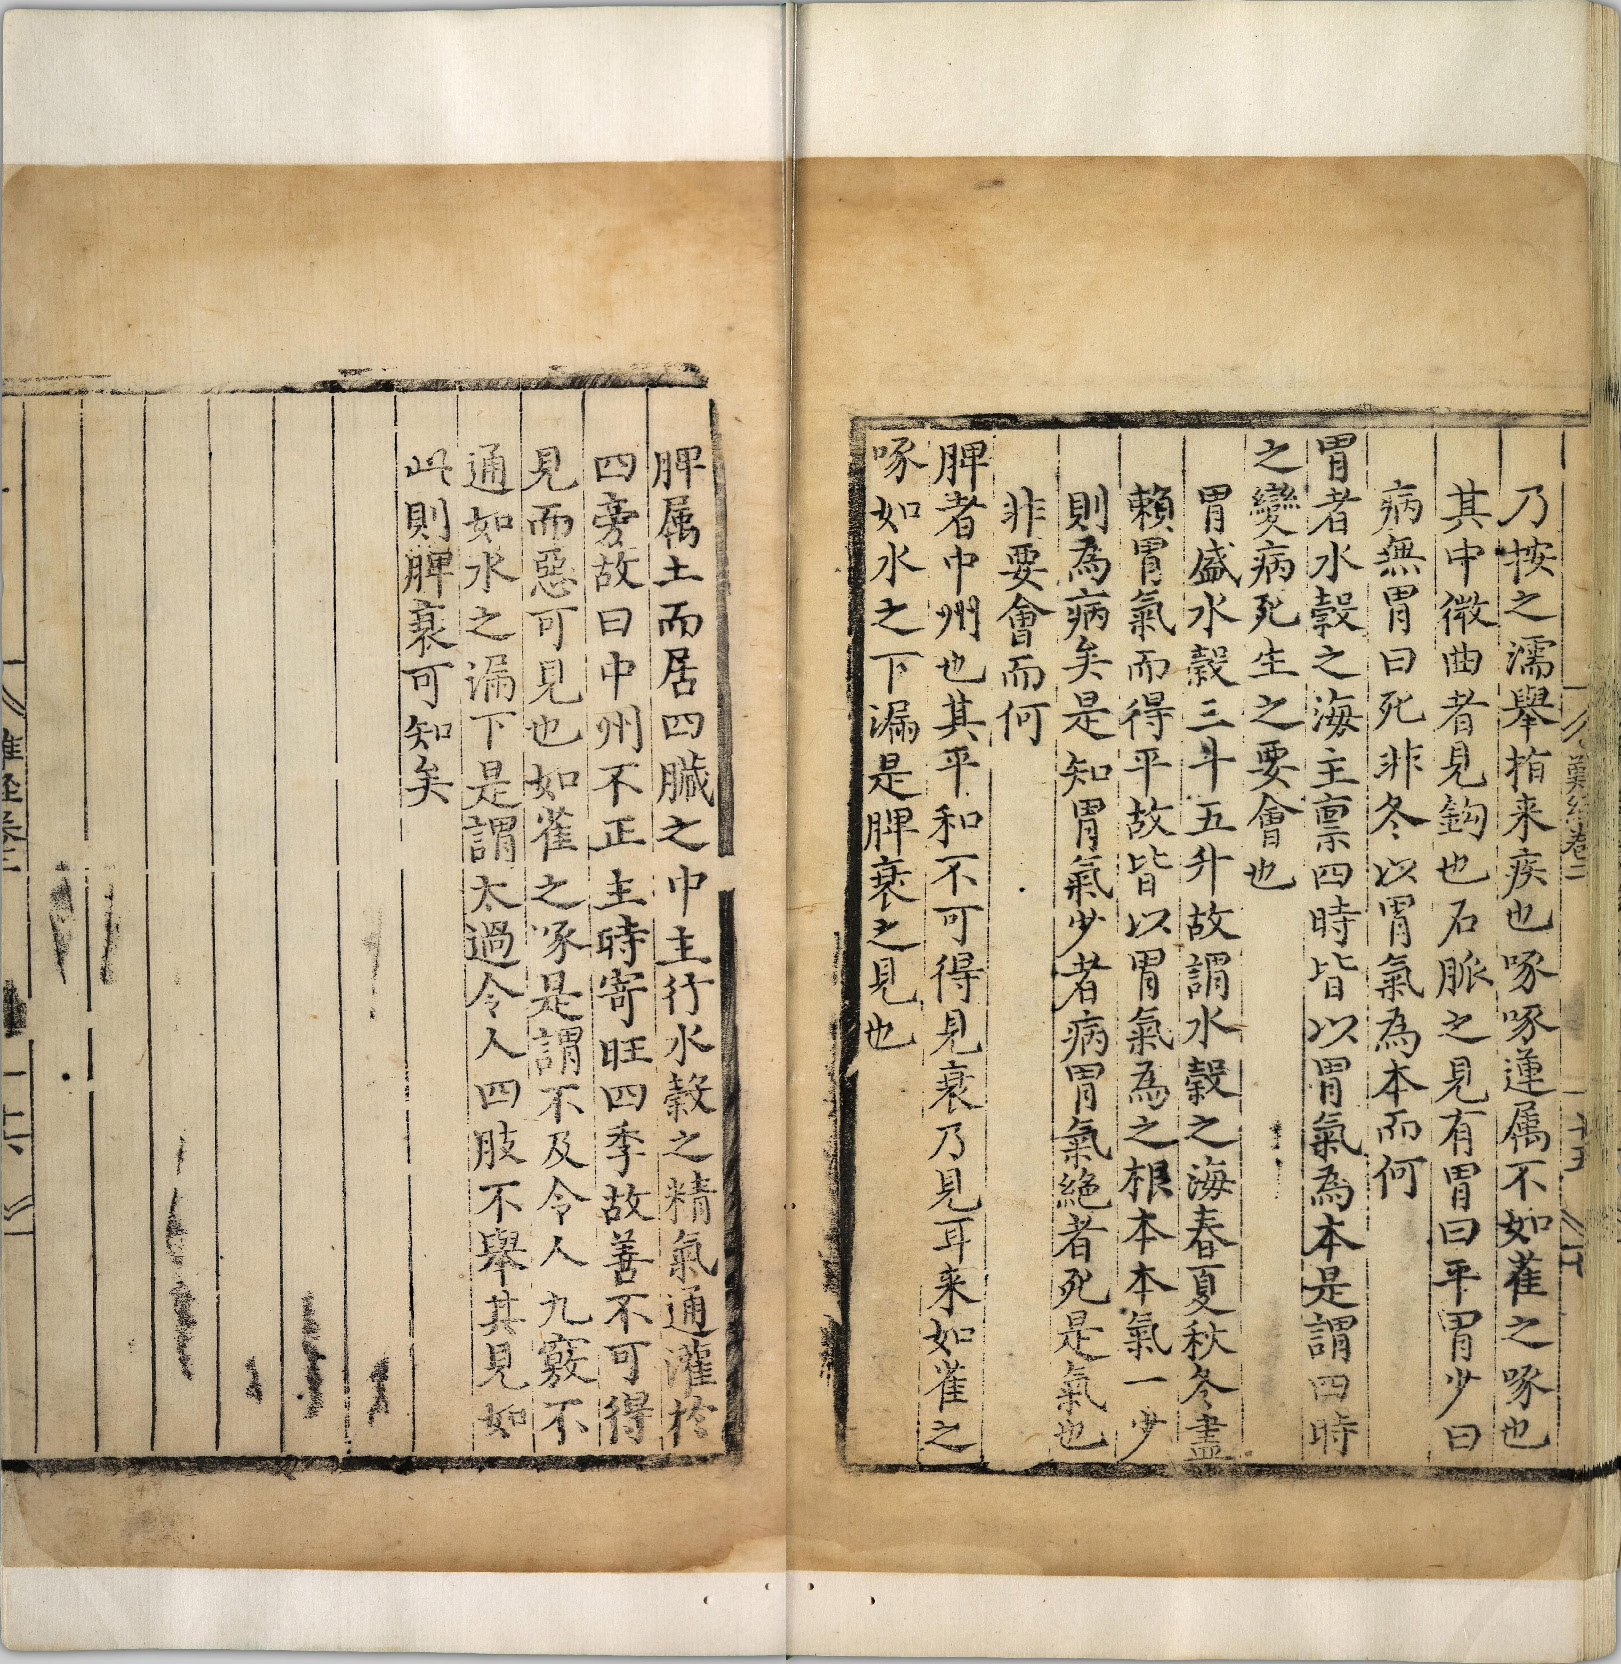 乃按之濡舉指来疾也啄啄連属不如雀之啄也
其中微曲者見鈎也石脈之見有胃曰平胃少曰
病無胃曰死非冬以胃氣為本而何
胃者水穀之海主禀四時皆以胃氣為本是謂四時
之變病死生之要會也
胃盛水穀三斗五升故謂水穀之海春夏秋冬盡
賴胃氣而得平故皆以胃氣為之根本本氣一少
則為病矣是知胃氣少者病胃氣絶者死是氣也
非要會而何
脾者中州也其平和不可得見衰乃見耳来如雀之
啄如水之下漏是脾衰之見也
難經卷二
十五
脾属土而居四臓之中主行水穀之精氣通灌於
四旁故曰中州不正主時寄旺四季故善不可得
見而惡可見也如雀之啄是謂不及令人九竅不
通如水之漏下是謂太過令人四肢不舉其見如
此則脾衰可知矣